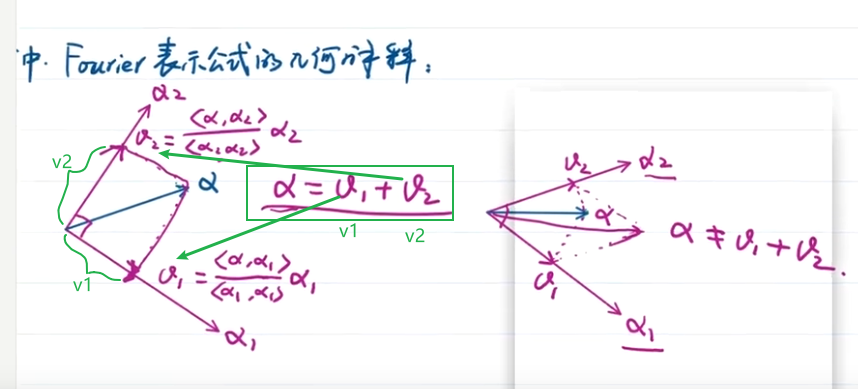 中. Fourier 表示公式的几何解释:
α2
v2 = <α, α2> / <α2 α2> α2
v2
α
α = v1 + v2
v1 v2
v1
v1 = <α, α1> / <α1, α1> α1
α1
v2 α2
α
α ≠ v1 + v2.
v1
α1